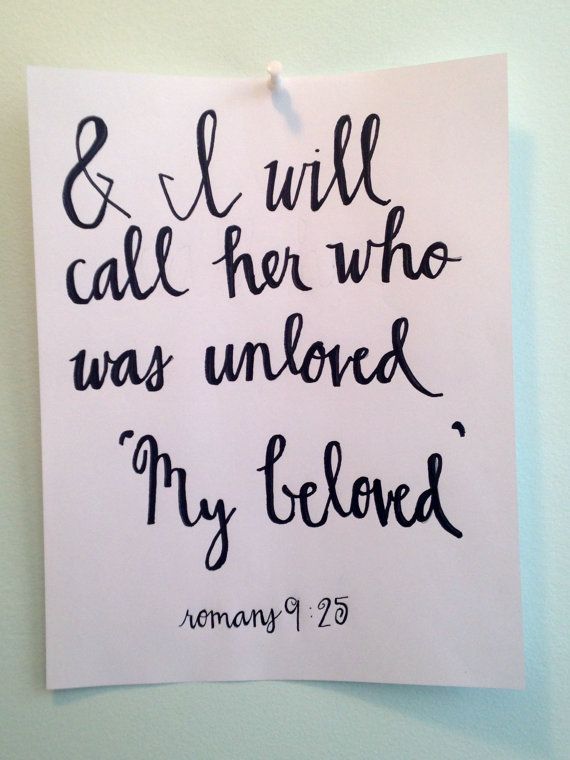 & I will
call her who
was unloved
'My beloved'
romans 9:25